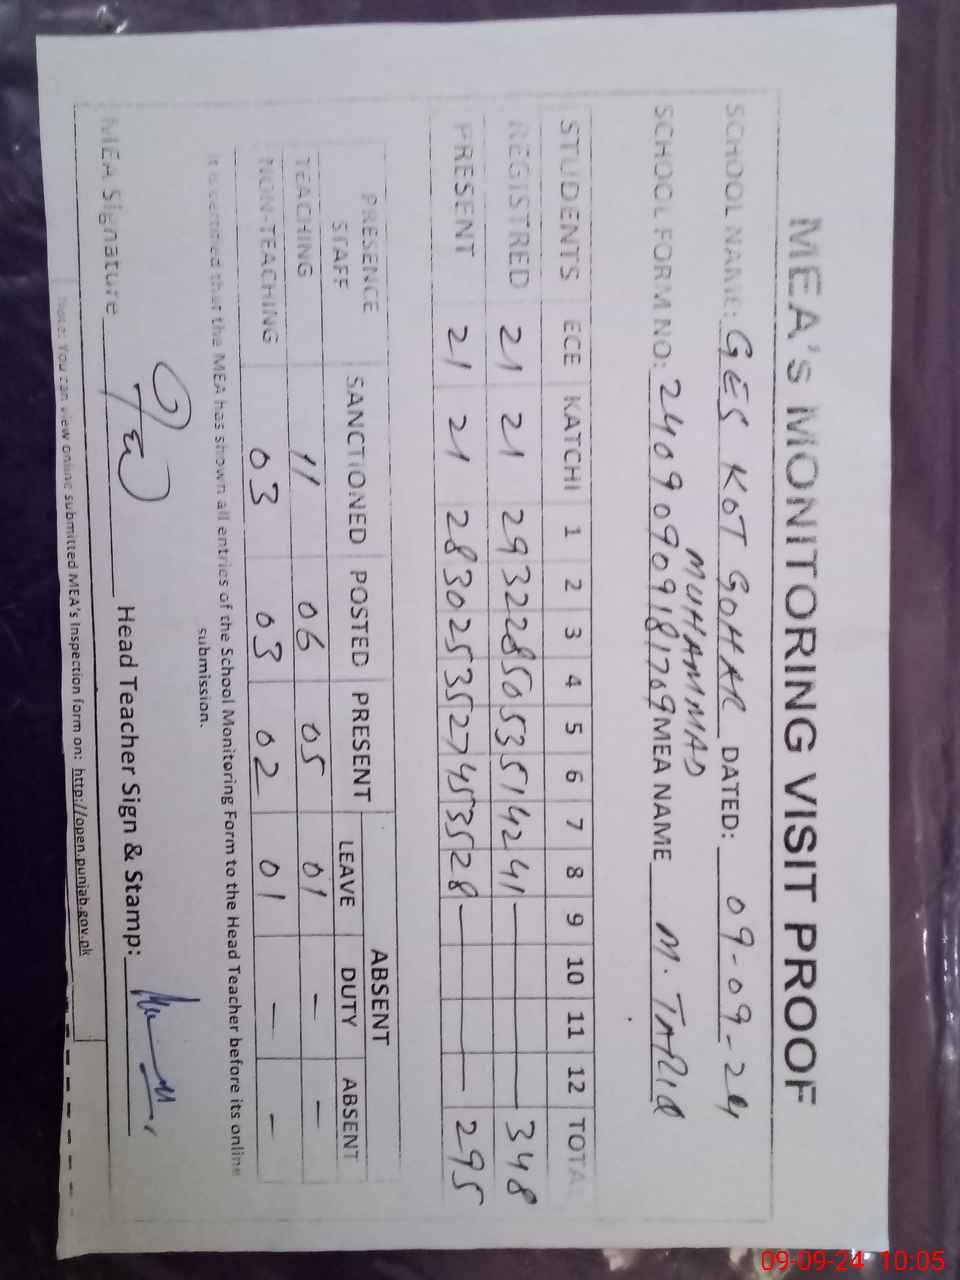 MEA's MONITORING VISIT PROOF
SCHOOL NAME: GES KOT GOHAR DATED: 09-09-24
MUHAMMAD
SCHOOL FORM NO: 24090909181709 MEA NAME M. TARIQ
STUDENTS ECE KATCHI 1 2 3 4 5 6 7 8 9 10 11 12 TOTAL
REGISTRED 21 21 29 32 28 50 53 51 42 41 — — 348
PRESENT 21 21 28 30 25 35 27 45 35 28 — — — 295
PRESENCE ABSENT
STAFF SANCTIONED POSTED PRESENT LEAVE DUTY ABSENT
TEACHING 11 06 05 01 - -
NON-TEACHING 03 03 02 01 - -
It is certified that the MEA has shown all entries of the School Monitoring Form to the Head Teacher before its online
submission.
MEA Signature Head Teacher Sign & Stamp:
Note: You can view online submitted MEA's Inspection form on: http://open.punjab.gov.pk
09-09-24 10:05